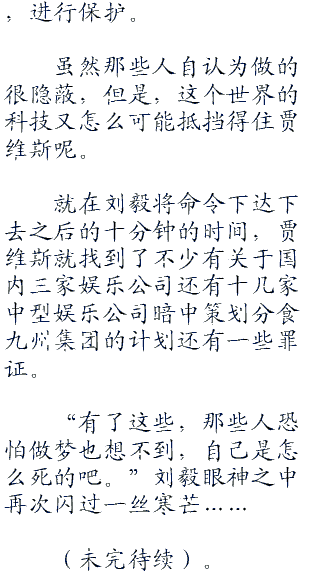 ，进行保护。
虽然那些人自认为做的
很隐蔽，但是，这个世界的
科技又怎么可能抵挡得住贾
维斯呢。
就在刘毅将命令下达下
去之后的十分钟的时间，贾
维斯就找到了不少有关于国
内三家娱乐公司还有十几家
中型娱乐公司暗中策划分食
九州集团的计划还有一些罪
证。
“有了这些，那些人恐
怕做梦也想不到，自己是怎
么死的吧。”刘毅眼神之中
再次闪过一丝寒芒……
（未完待续）。